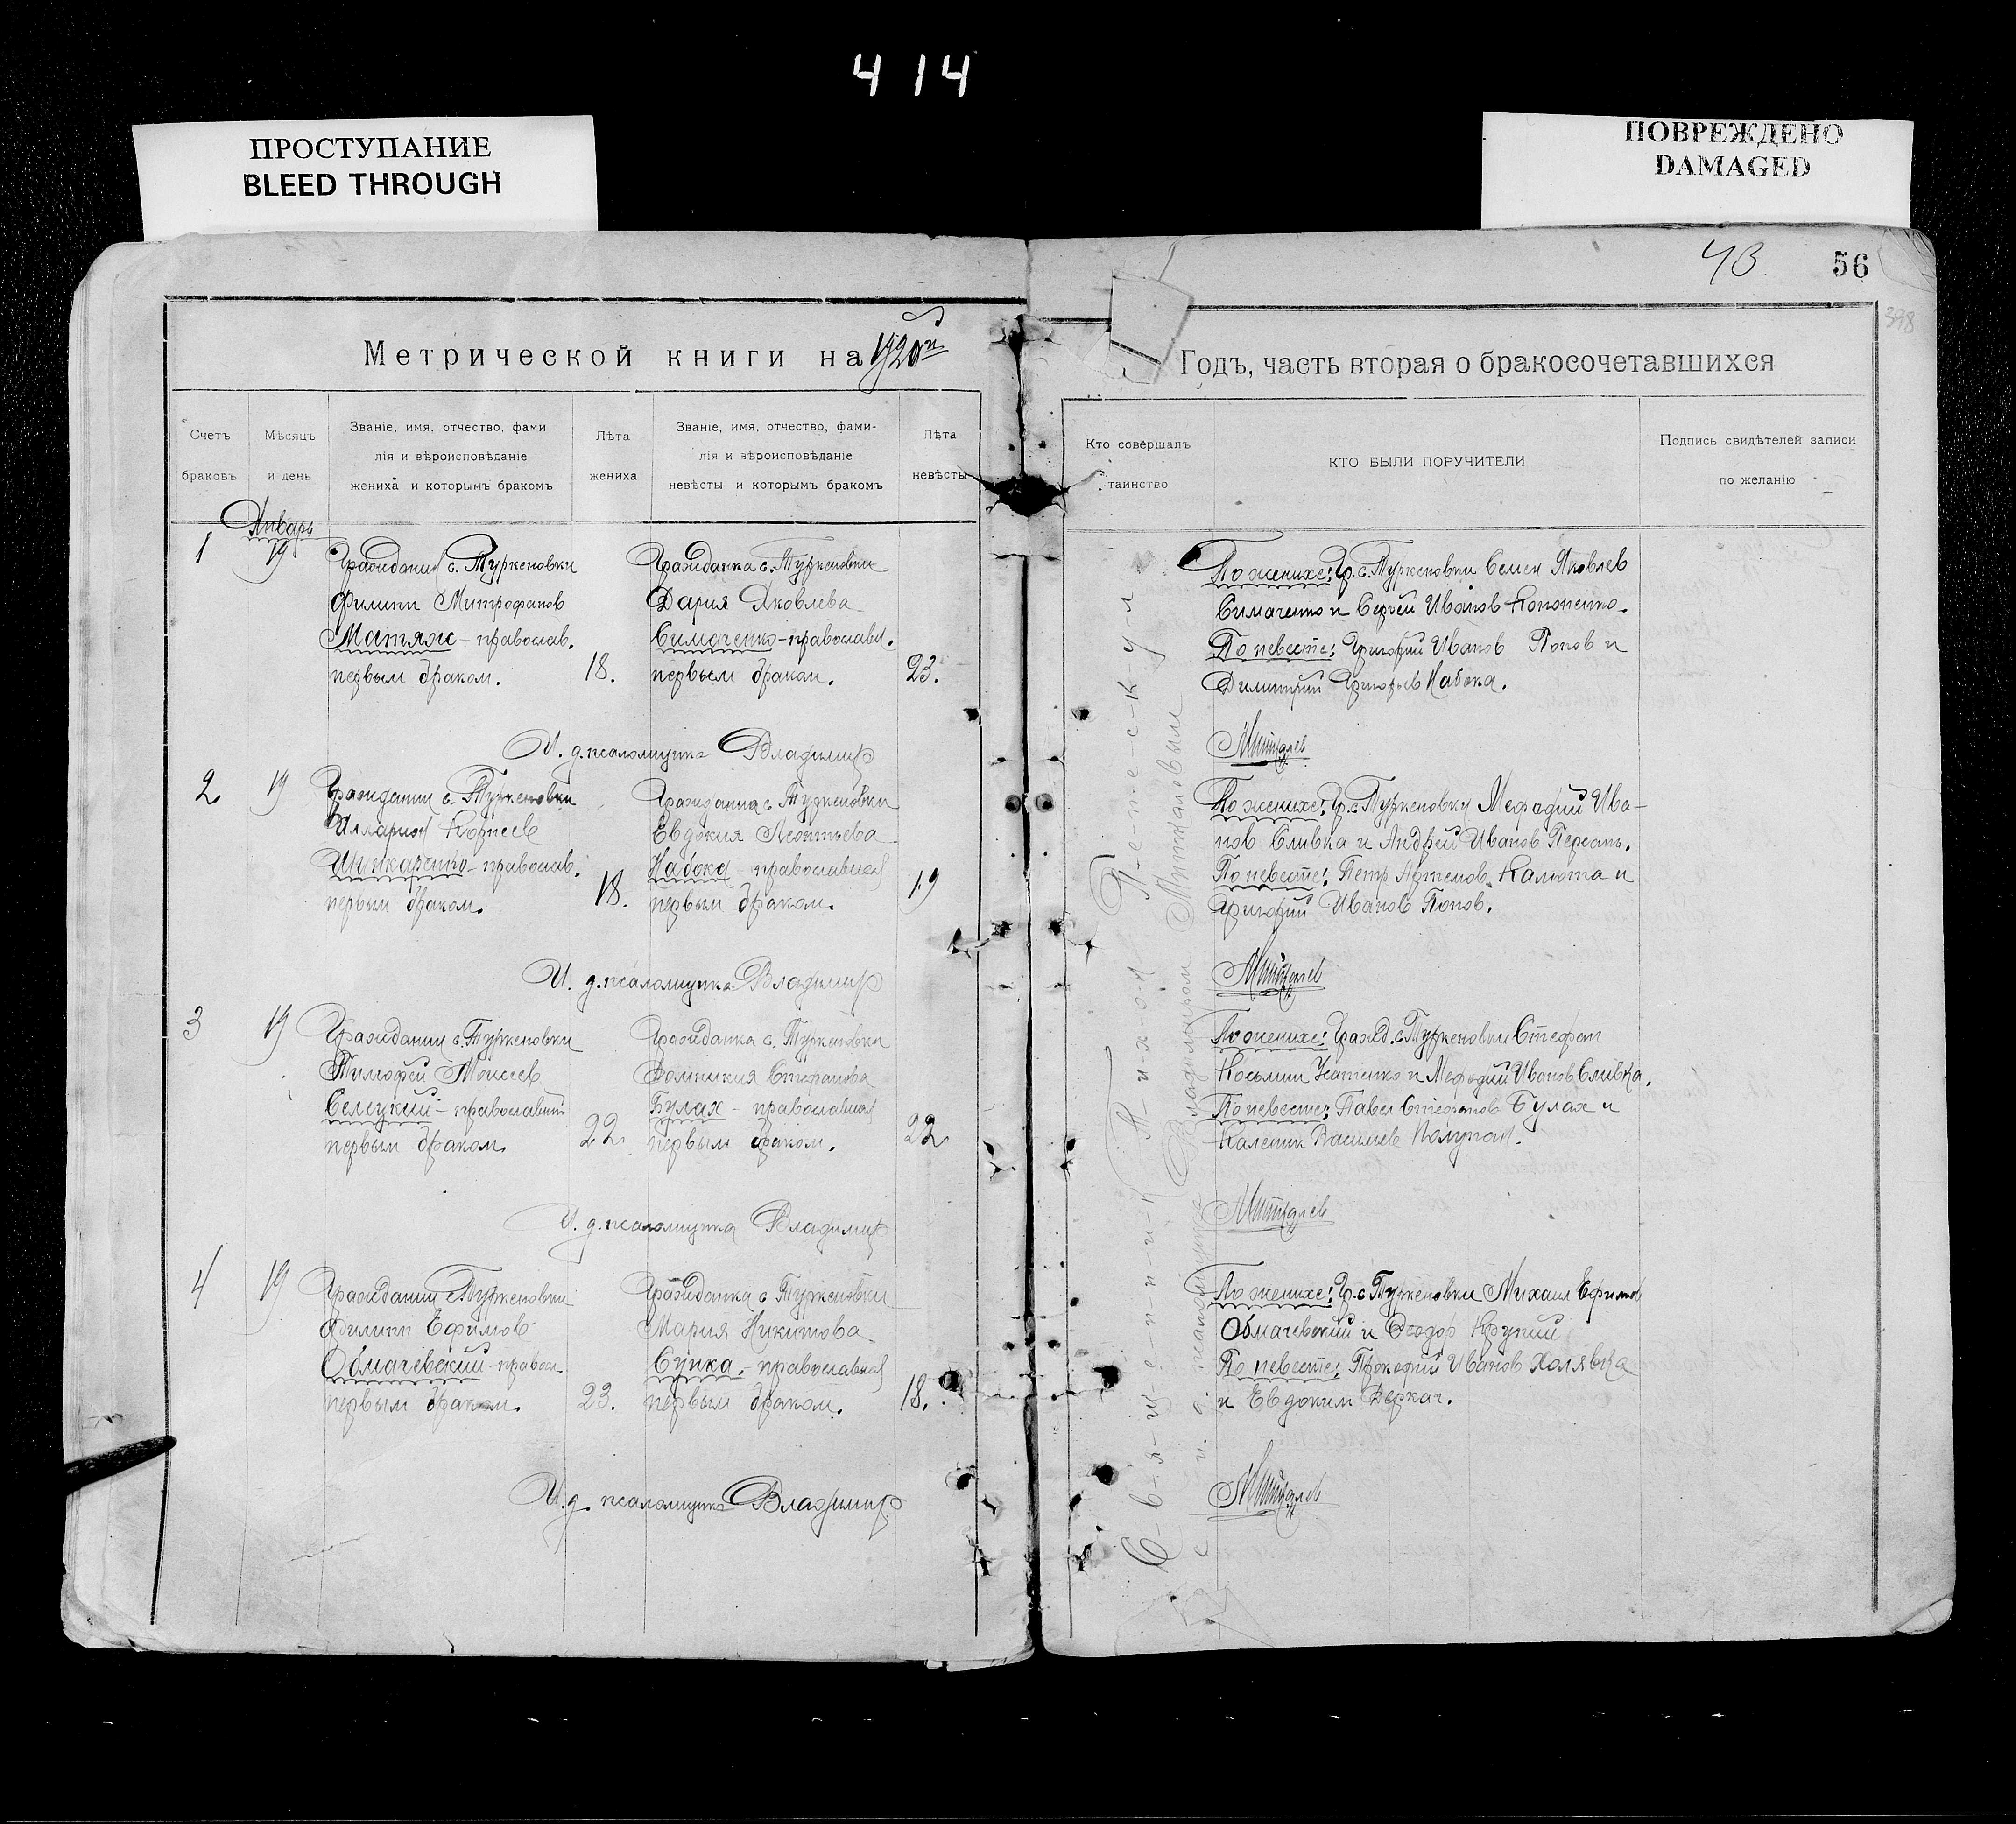 4 14
ПРОСТУПАНИЕ
BLEED THROUGH
ПОВРЕЖДЕНО
DAMAGED
43
56
398
Метрической книги на 1920й
Годъ, часть вторая о бракосочетавшихся
Счетъ браковъ
Мѣсяцъ и день
Званіе, имя, отчество, фами
лія и вѣроисповѣданіе
жениха и которымъ бракомъ
Лѣта жениха
Званіе, имя, отчество, фами-
лія и вѣроисповѣданіе
невѣсты и которымъ бракомъ
Лѣта невѣсты
Кто совершалъ таинство
КТО БЫЛИ ПОРУЧИТЕЛИ
Подпись свидѣтелей записи
по желанію
Январь
1
19
Гражданин с. Туркеновки
Филипп Митрофанов
Матяж - православ.
первым браком.
18.
Гражданка с. Туркеновки
Дария Яковлева
Симаченко - православн.
первым браком.
23.
По женихе: Гр. с. Туркеновки Семен Яковлев
Симаченко и Сергей Иванов Кононенко.
По невесте: Григорий Иванов Попов и
Димитрий Григорьев Набока.
И. д. псаломщика Владимир
2
19
Гражданин с. Туркеновки
Илларион Корнеев
Шинкаренко - православ.
первым браком.
18.
Гражданка с. Туркеновки
Евдокия Леонтьева
Набока - православная
первым браком.
19
По женихе: Гр. с. Туркеновки Мефодий Ива-
нов Сливка и Андрей Иванов
По невесте: Петр Артемов Калюта и
Григорий Иванов Попов.
И. д. псаломщика Владимир
3
19
Гражданин с. Туркеновки
Тимофей Моисеев
Селецкий - православный
первым браком.
22.
Гражданка с. Туркеновки
Домникия Стефанова
Булах - православная
первым браком.
22
По женихе: Гражд. с. Туркеновки Стефан
Косьмин и Мефодий Иванов Сливка.
По невесте: Павел Стефанов Булах и
Каленик Васильев
И. д. псаломщика Владимир
4
19
Гражданин с. Туркеновки
Филипп Ефимов
Обмачевский - правосл.
первым браком.
23.
Гражданка с. Туркеновки
Мария Никитова
Сучка - православная
первым браком.
18.
По женихе: Гр. с. Туркеновки Михаил Ефимов
Обмачевский и Феодор Крупий
По невесте: Иванов Холявка
и Евдоким Деркач.
И. д. псаломщика Владимир
С-в-я-щ-е-н-н-и-к Т-и-х-о-н П-е-п-е-с-к-у-л
с и. д. псаломщика Владимиром